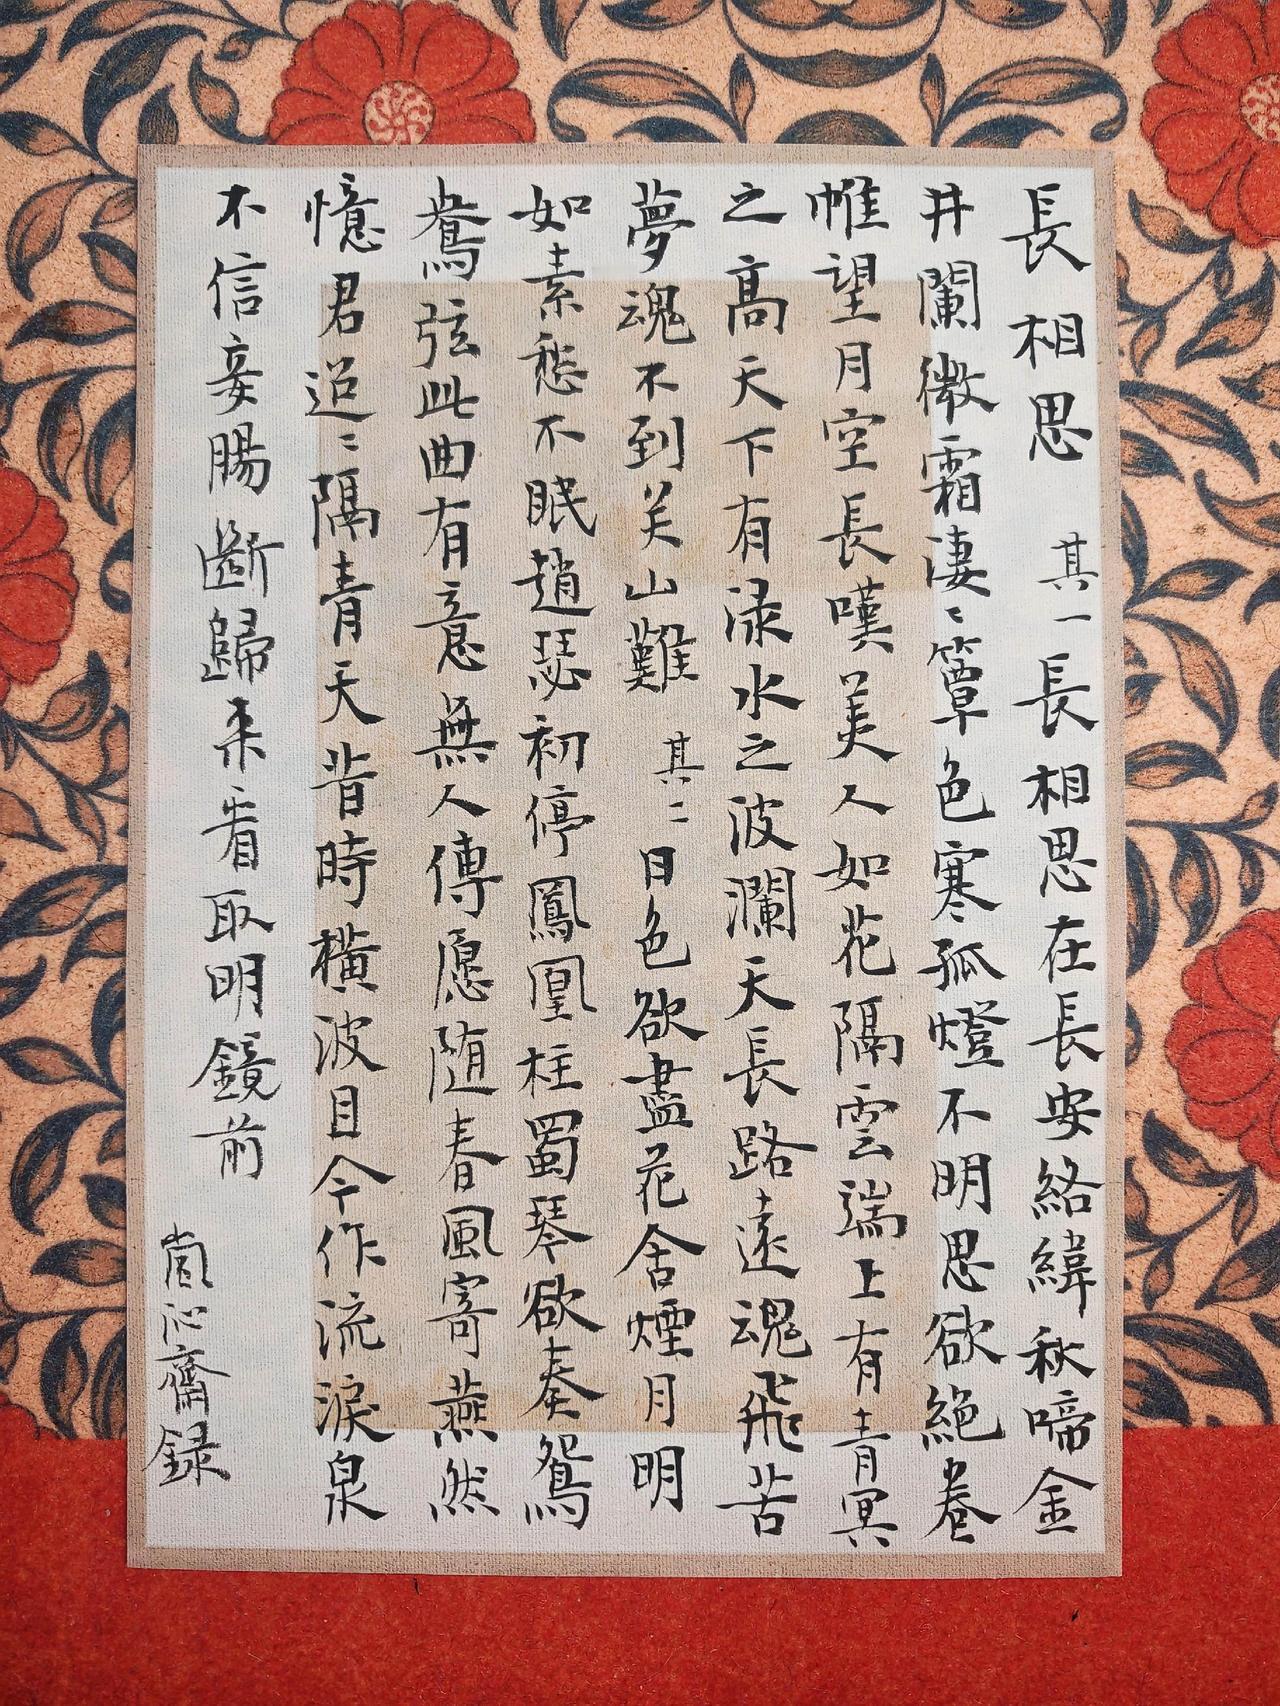 長相思 其一 長相思在長安絡緯秋啼金
井闌微霜凄〻簟色寒孤燈不明思欲絕卷
帷望月空長嘆美人如花隔雲端上有青冥
之高天下有渌水之波瀾天長路遠魂飛苦
夢魂不到关山難 其二 日色欲盡花含煙月明
如素愁不眠趙瑟初停鳳凰柱蜀琴欲奏鴛
鴦弦此曲有意無人傳愿随春風寄燕然
憶君迢〻隔青天昔時橫波目今作流淚泉
不信妾腸斷歸来看取明鏡前
沁齋録